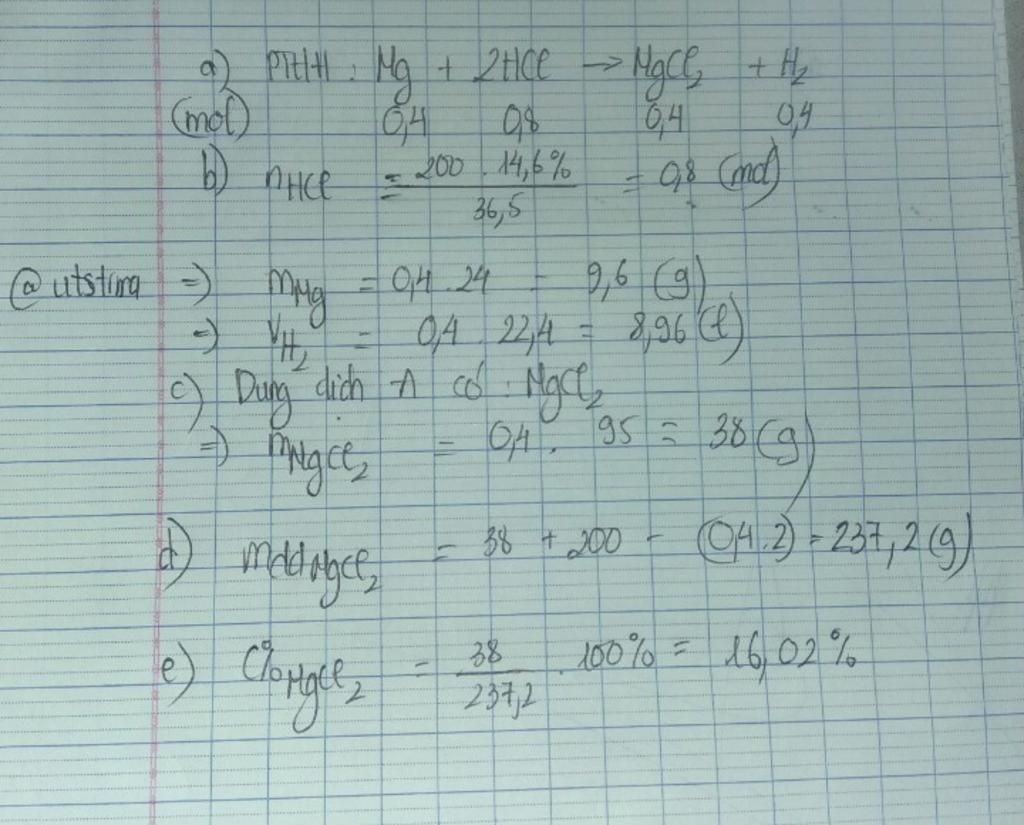 a) PTHH : Mg + 2HCl → MgCl₂ + H₂
(mol) 0,4 0,8 0,4 0,4
b) nHCl = 200 . 14,6% / 36,5 = 0,8 (mol)
@utstira => mMg = 0,4 . 24 = 9,6 (g)
=> VH₂ = 0,4 . 22,4 = 8,96 (l)
c) Dung dịch A có : MgCl₂
=> mMgCl₂ = 0,4 . 95 = 38 (g)
d) mddMgCl₂ = 38 + 200 - (0,4 . 2) = 237,2 (g)
e) C%MgCl₂ = 38 / 237,2 . 100% = 16,02%